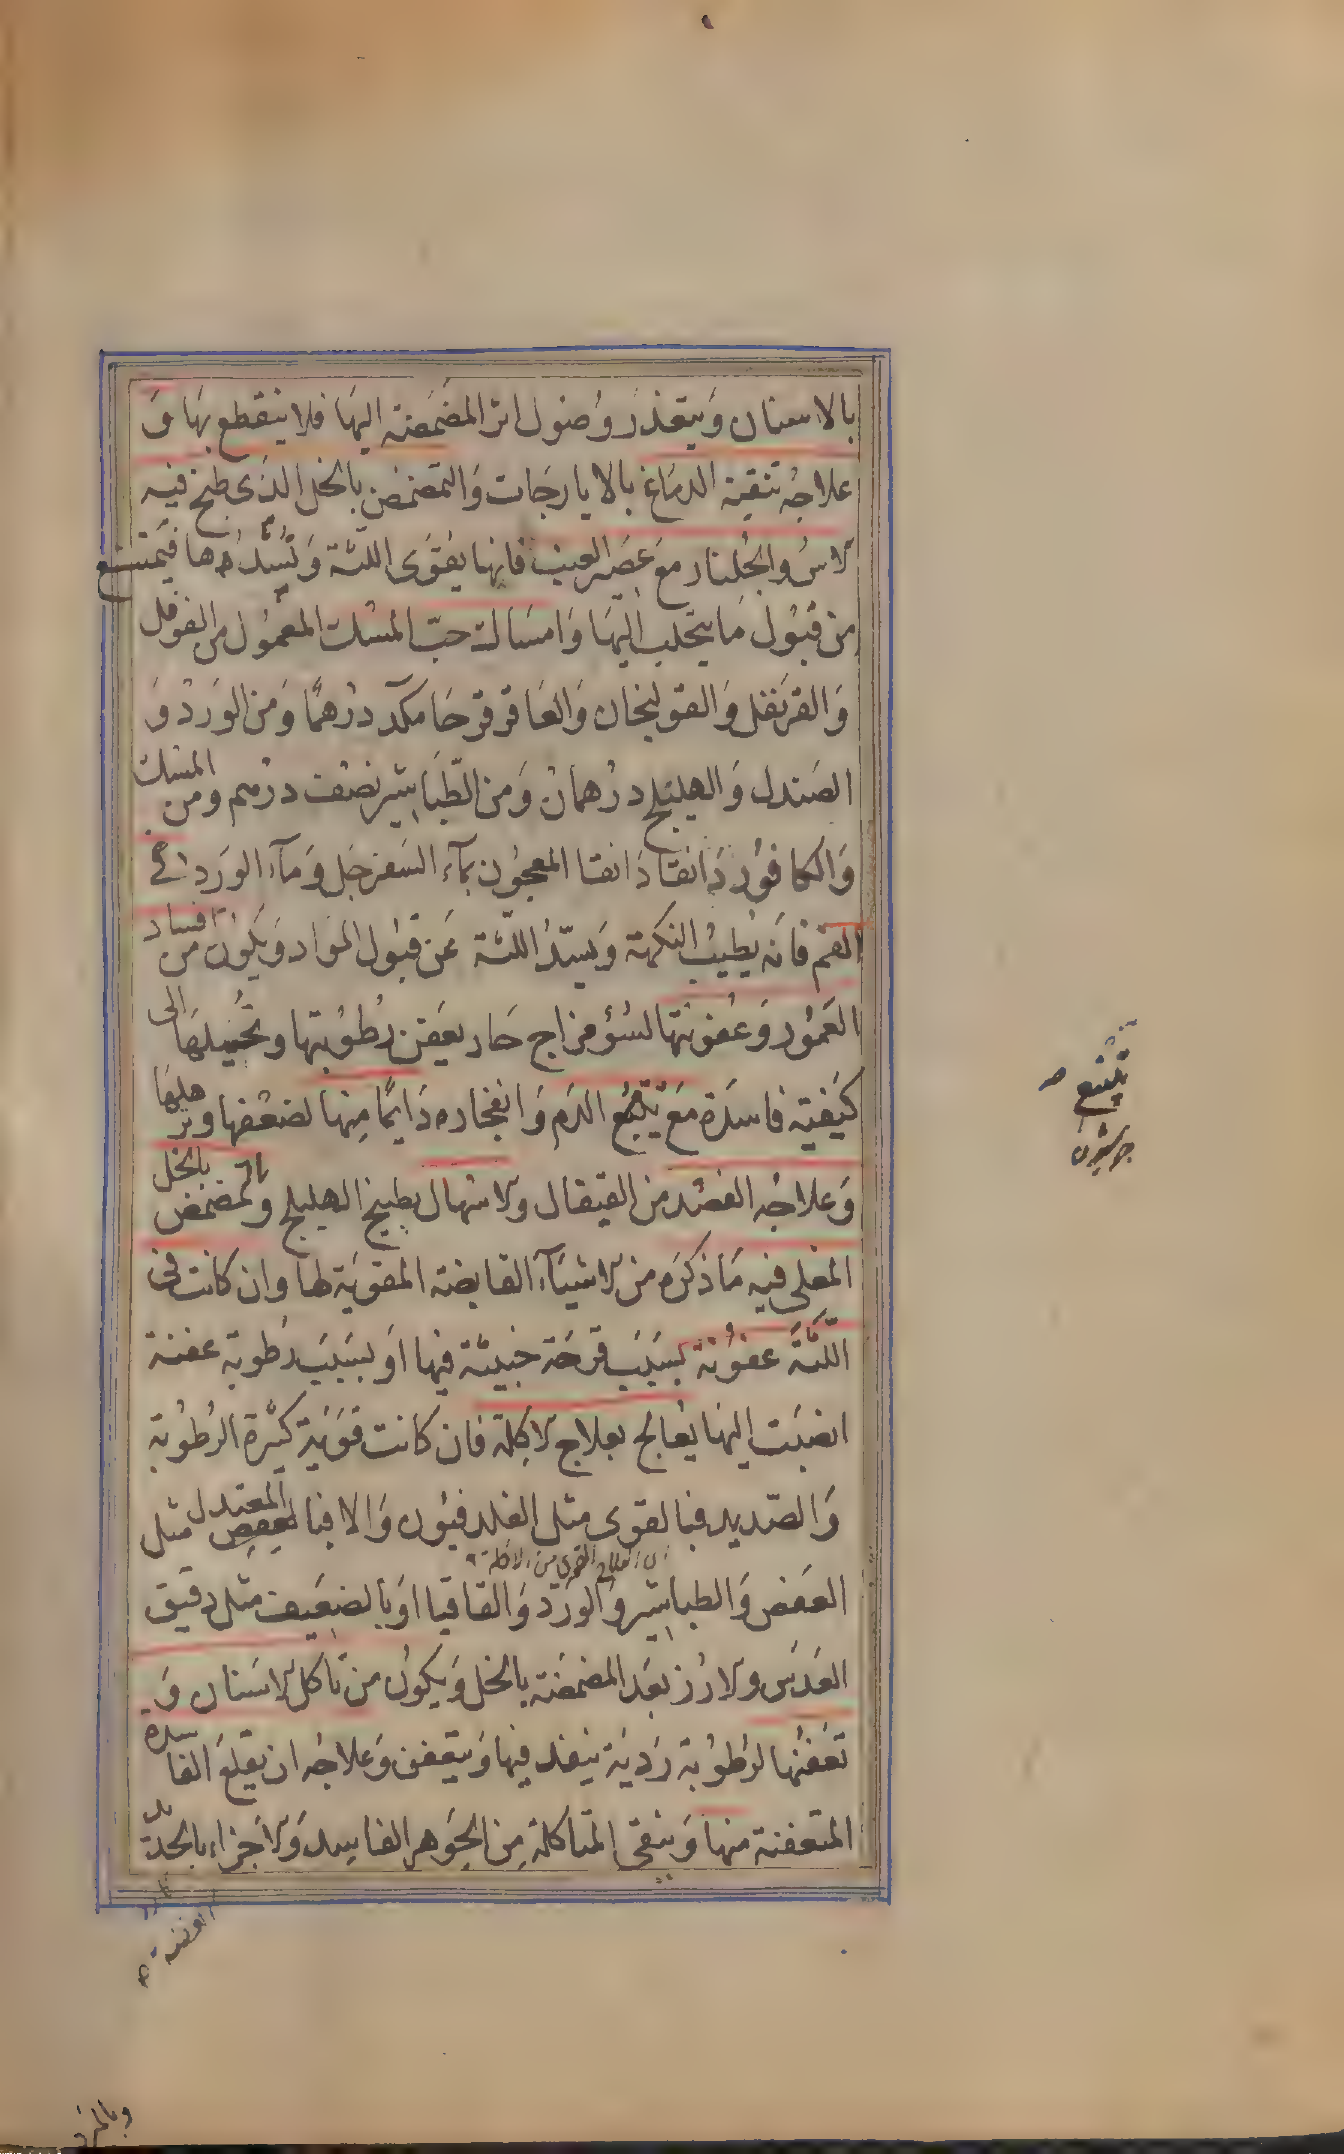 بالاسنان وَيتعذر وُصول اثر المضمضة اليها فلا ينقطع بها وَ
علاجُه تنقية الدماغ بالايارجات وَالتمضمض بالخل الذى طبخ فيه
الاسُ والجُلنار مع عصير العنب فانها يقوى اللثة وَتشدُها فيمتنع
من قبُول مَا يتحلب اليها وَامسَاك حبّ المسك المعمُول من الفوفل
وَالقرنفل وَالقولنجان وَالعَاقرقرحَا مكد درهمًا وَمن الوَرد وَ
الصَندل وَالهليلج درهمان وَمن الطّبَاشير نصف درهم ومن المسك
وَالكافوُر دَانقا دَانقا المعجُون بمآء السَفرجَل وَمآء الورد فى
الفم فانه يُطيبُ النكهة وَيسدّ اللثة عَن قبُول المواد وَيكون من افساد
العمُور وَعُفونتها لسُؤ مزاج حَار يعفن رطُوبتها وتحُيلها الى
كيفية فاسدة مَع تتبّع الدَم وَانفجاره دَايمًا مِنها لضعفها وترهلها
وَعلاجُه الفصْد من القيفال والاسهال بطبيخ الهليلج والتمضمض بالخل
المغلى فيه مَا ذكرَه من الاشيَآء القابضة المقويَة لها وان كانت فى
اللّثَّة عفوُنة بسَبَب قرحَة خبيثة فيها اوَ بسَبَب رَطوبة عفنة
انصَبت اليهَا يعُالج بعلاج الاكلة فان كانت قوَية كثيرة الرُطوُبة
وَالصّديد فبالقوى مثل الفلدفيُون وَالا فبالمعتدل مثل
اى العلاج القوى من الاكلة
العَفص وَالطباشير وَالورَد وَالقاقيا اوَ بالضعَيف مثل دقيق
العَدَس والارُز بعَد المضمضة بالخل وَيكوُن من تاكل الاسَنان وَ
تعَفنها لرُطوُبة رَدية ينفذ فيها وَيتعفن وَعلاجُه ان يقلعَ الفاسدة
المتعفنة منها وَينقى المتاكلة مِن الجَوهر الفاسِد وَالاجَزاء بالحدّ
العفنة
تتبّع
جوشيدن
وبالمبرد